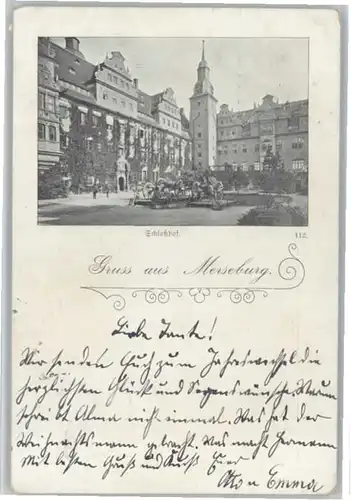 Schloßhof.
112.
Gruss aus Merseburg.
Liebe Tante!
Wir senden Euch zum Jahreswechsel die
herzlichsten Glück und Segenswünsche. Warum
schreibt Alma nicht einmal. Was hat der
Weihnachtsmann gebracht. Was macht Hermann
Mit besten Gruß und Kuß Eure
Otto u Emma